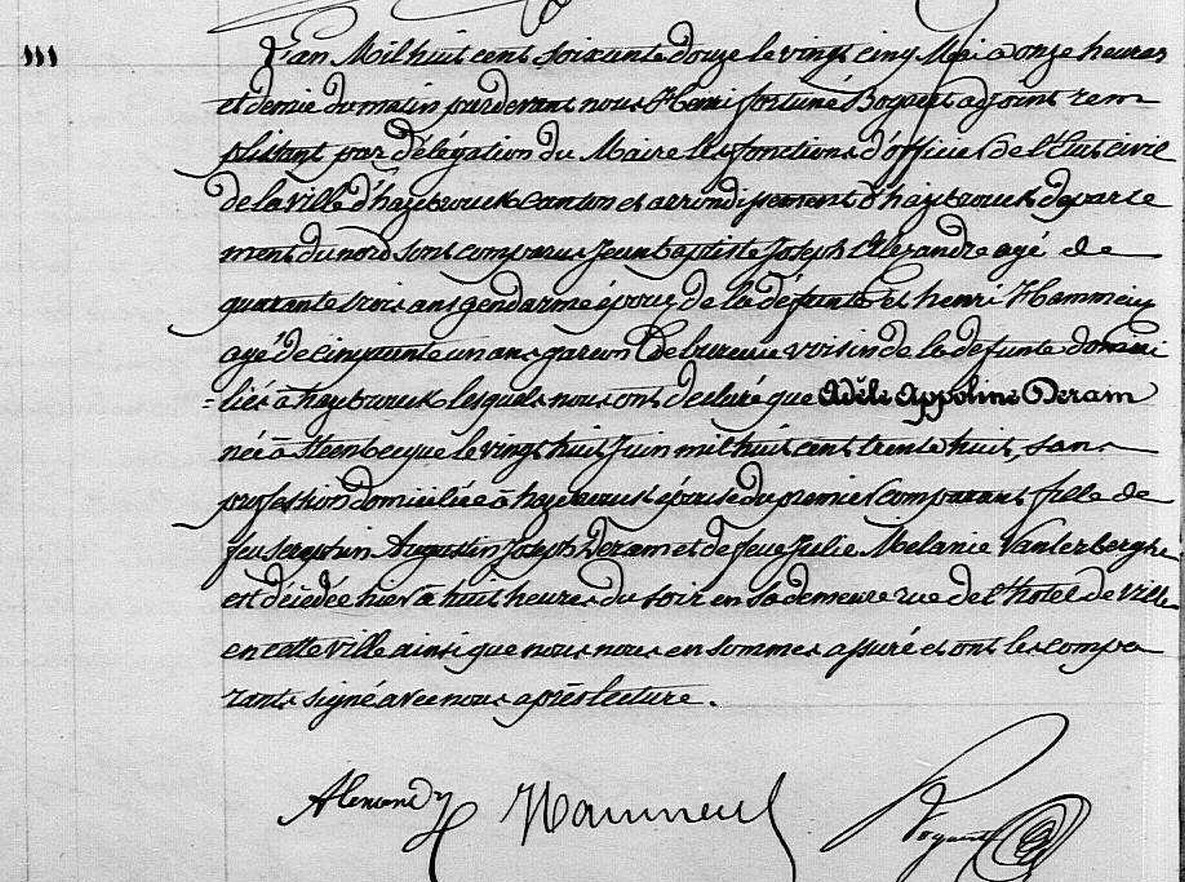 111
L'an Mil huit cent soixante douze le vingt cinq Mai à onze heures
et demie du matin pardevant nous Henri fortuné Bogaert adjoint rem
plissant par délégation du Maire les fonctions d'officier de l'Etat civil
de la ville d'hazebrouck canton et arrondissement d'hazebrouck départe
ment du nord sont comparus Jean baptiste Joseph Alexandre agé de
quarante trois ans gendarme époux de la défunte et henri Hammeux
agé de cinquante un ans garcon de bureau voisin de la defunte domici
=liés à hazebrouck lesquels nous ont declaré que Adèle Appoline Deram
née à Steenbecque le vingt huit Juin mil huit cent trente huit, sans
profession domiciliée à hazebrouck épouse du premier comparant fille de
feu Augustin Joseph Deram et de feue Julie Melanie Vanterberghe
est décédée hier à huit heures du soir en sa demeure rue de l'hotel de ville
en cette ville ainsi que nous nous en sommes assuré et ont les compa
rants signé avec nous après lecture.
Hammeux